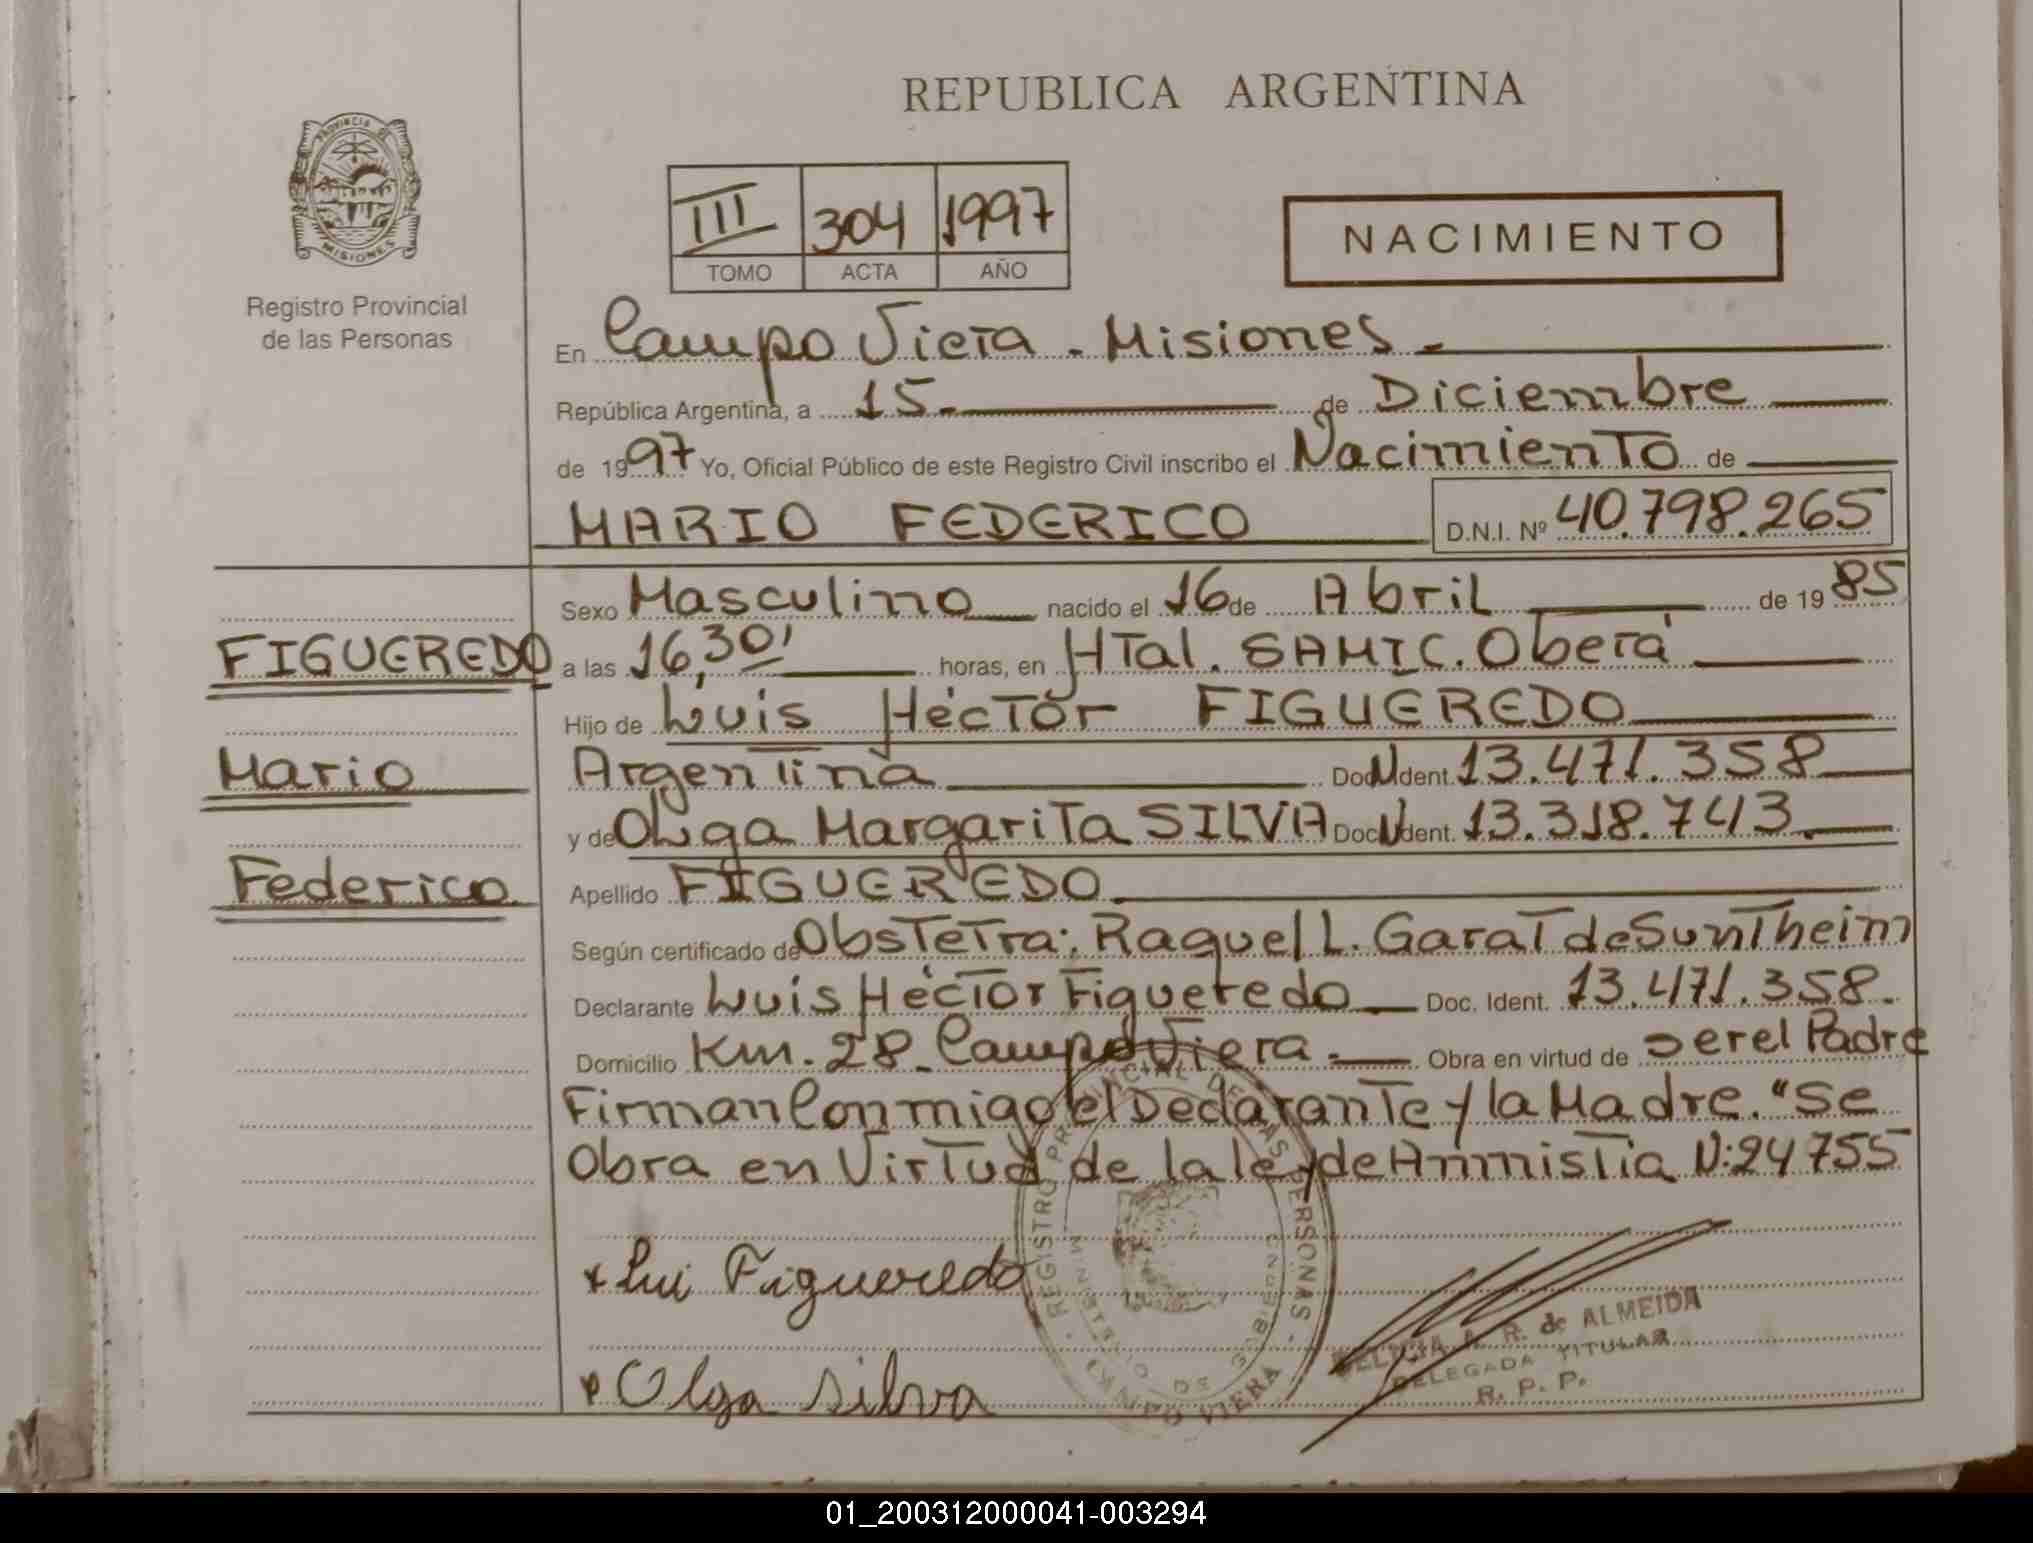 REPUBLICA ARGENTINA
PROVINCIA DE
MISIONES
Registro Provincial
de las Personas
III 304 1997
TOMO ACTA AÑO
NACIMIENTO
En Campo Viera - Misiones -
República Argentina, a 15 - de Diciembre
de 1997 Yo, Oficial Público de este Registro Civil inscribo el Nacimiento de
MARIO FEDERICO D.N.I. Nº 40.798.265
Sexo Masculino nacido el 16 de Abril de 1985
FIGUEREDO a las 16,30' horas, en HTal. SAMIC. Oberá
Hijo de Luis Héctor FIGUEREDO
Mario Argentina Doc. Ident. 13.471.358
y de Olga Margarita SILVA Doc. Ident. 13.318.743.
Federico Apellido FIGUEREDO
Según certificado de Obstetra: Raquel L. Garat de Suntheim
Declarante Luis Héctor Figueredo Doc. Ident. 13.471.358.
Domicilio Km. 28 - Campo Viera - Obra en virtud de ser el Padre
Firman Conmigo el Declarante y la Madre. "Se
Obra en Virtud de la ley de Amnistia N: 24755
REGISTRO PROVINCIAL DE LAS PERSONAS
MINISTERIO DE GOBIERNO
CAMPO VIERA
x Lui Figueredo
x Olga Silva
A. R. de ALMEIDA
DELEGADA TITULAR
R. P. P.
01_200312000041-003294